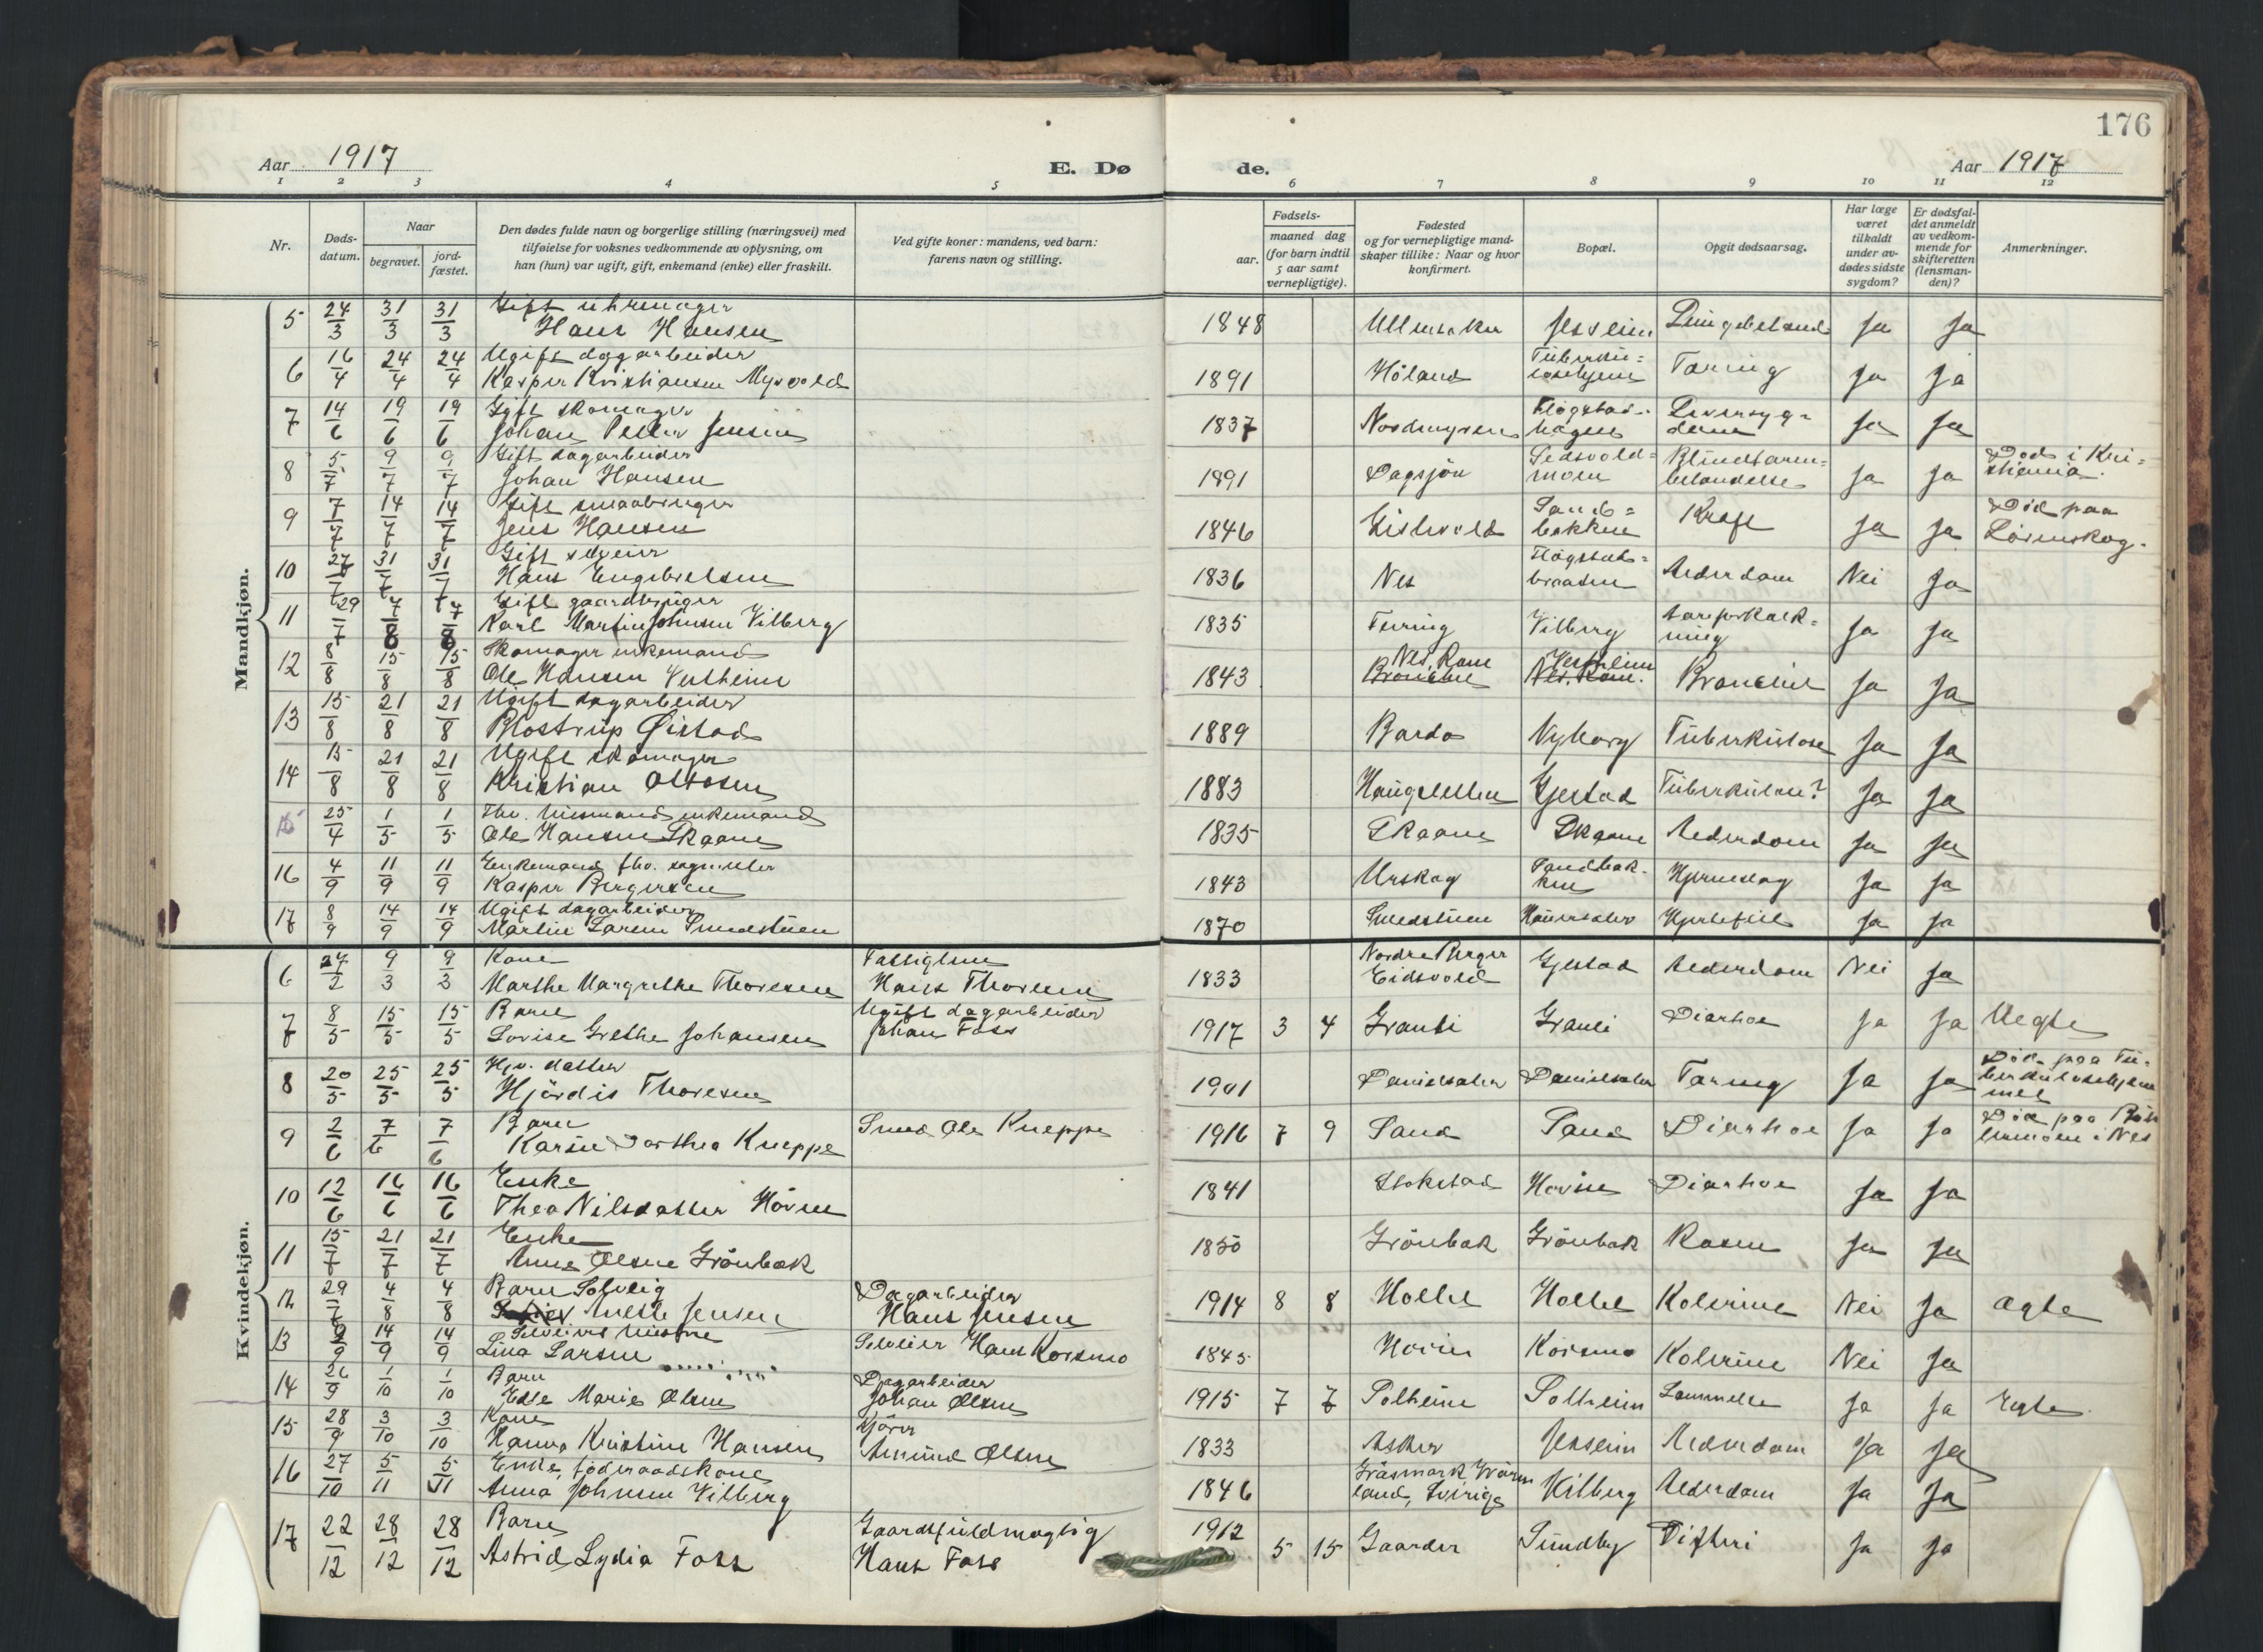 176
Aar 1917
E. Dø
de.
Aar 1917
1 2 3 4 5 6 7 8 9 10 11 12
Nr.
Døds-
datum.
Naar
begravet.
jord-
fæstet.
Den dødes fulde navn og borgerlige stilling (næringsvei) med
tilføielse for voksnes vedkommende av oplysning, om
han (hun) var ugift, gift, enkemand (enke) eller fraskilt.
Ved gifte koner: mandens, ved barn:
farens navn og stilling.
Fødsels-
aar.
maaned dag
(for barn indtil
5 aar samt
vernepligtige).
Fødested
og for vernepligtige mand-
skaper tillike: Naar og hvor
konfirmert.
Bopæl.
Opgit dødsaarsag.
Har læge
været
tilkaldt
under av-
dødes sidste
sygdom?
Er dødsfal-
det anmeldt
av vedkom-
mende for
skifteretten
(lensman-
den)?
Anmerkninger.
Mandkjøn.
5 24/3 31/3 31/3 Gift uhrmager
Hans Hansen 1848 Ullensaker Jessheim Ja Ja
6 16/4 24/4 24/4 Ugift dagarbeider
Kasper Kristiansen Myrvold 1891 Høland Tuberku=
losehjem Tæring Ja Ja
7 14/6 19/6 19/6 Gift skomager
Johan Petter Jensen 1837 Nordmyren Algstad-
hagen Leversyg=
dom Ja Ja
8 5/7 9/7 9/7 Gift dagarbeider
Johan Hansen 1891 Dagsjøn moen Blindtarm=
betændelse Ja Ja Død i Kri=
stiania.
9 7/7 14/7 14/7 Gift smaabruger
Jens Hansen 1846 Sand=
bakken Kræft Ja Ja Død paa
Lørenskog.
10 27/7 31/7 31/7 Gift selveier
Hans Engebretsen 1836 Nes Algstad=
braaten Alderdom Nei Ja
11 29/7 7/8 7/8 Gift gaardbruger
Karl Martin Johnsen Vilberg 1835 Fenring Vilberg Aareforkalk=
ning Ja Ja
12 8/8 15/8 15/8 Skomager enkemand
Ole Hansen Vestheim 1843 Nes, Rom. Vestheim Bronchit Ja Ja
13 15/8 21/8 21/8 Ugift dagarbeider
Rostrup Øistad 1889 Bardo Nyborg Tuberkulose Ja Ja
14 15/8 21/8 21/8 Ugift skomager
Kristian Ottosen 1883 Haugsletten Gjestad Tuberkulose? Ja Ja
15 25/4 1/5 1/5 Fhv. husmand enkemand
Ole Hansen Skaane 1835 Skaane Skaane Alderdom Ja Ja
16 4/9 11/9 11/9 Enkemand fhv.
Kasper Bergersen 1843 Urskog Sandbak-
ken Hjerneslag Ja Ja
17 8/9 14/9 14/9 Ugift dagarbeider
Martin Larsen Smedstuen 1870 Smedstuen Hauersæter Hjertefeil Ja Ja
Kvindekjøn.
6 27/2 9/3 9/3 Kone
Marthe Margrethe Thoresen Fattiglem
Hans Thoresen 1833 Nordre Berger
Eidsvold Gjestad Alderdom Nei Ja
7 8/5 15/5 15/5 Barn
Lovise Grethe Johansen Ugift dagarbeider
Johan Foss 1917 3 4 Grauli Grauli Diarhoe Ja Ja Uegte
8 20/5 25/5 25/5 Hjv. datter
Hjördis Thoresen 1901 Danielsæter Danielsæter Tæring Ja Ja Død paa Tu-
berkulosehjem
met
9 2/6 7/6 7/6 Barn
Karin Dorthea Kneppe Smed Ole Kneppe 1916 7 9 Sand Sand Diarhoe Ja Ja Død paa
i Nes
10 12/6 16/6 16/6 Enke
Thea Nilsdatter Hovin 1841 Stokstad Hovin Diarhoe Ja Ja
11 15/7 21/7 21/7 Enke
Anne Olsen Grönbæk 1850 Grönbæk Grönbæk Rosen Ja Ja
12 29/7 4/8 4/8 Barn Solveig
Anette Jensen Dagarbeider
Hans Jensen 1914 8 8 Holtet Holtet Kolerine Nei Ja Ægte
13 9/9 14/9 14/9 Selveiers hustru
Lina Larsen Selveier Hans Korsmo 1845 Hovin Korsmo Kolerine Nei Ja
14 26/9 1/10 1/10 Barn
Edle Marie Olsen Dagarbeider
Johan Olsen 1915 7 7 Solheim Solheim Ja Ja Egte
15 28/9 3/10 3/10 Kone
Hanna Kristine Hansen Kjörer
Amund Olsen 1833 Asker Jessheim Alderdom Ja Ja
16 27/10 5/11 5/11 Enke, föderaadskone
Anna Johnsen Vilberg 1846 Gräsmark, Wärm
land, Sverige Vilberg Alderdom Ja Ja
17 22/12 28/12 28/12 Barn
Astrid Lydia Foss Gaardsfuldmægtig
Hans Foss 1912 5 15 Gaarder Sundby Difteri Ja Ja